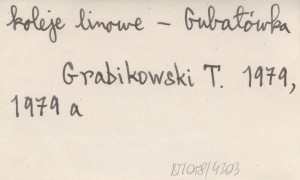 koleje linowe – Gubałówka
Grabikowski T. 1979,
1979 a